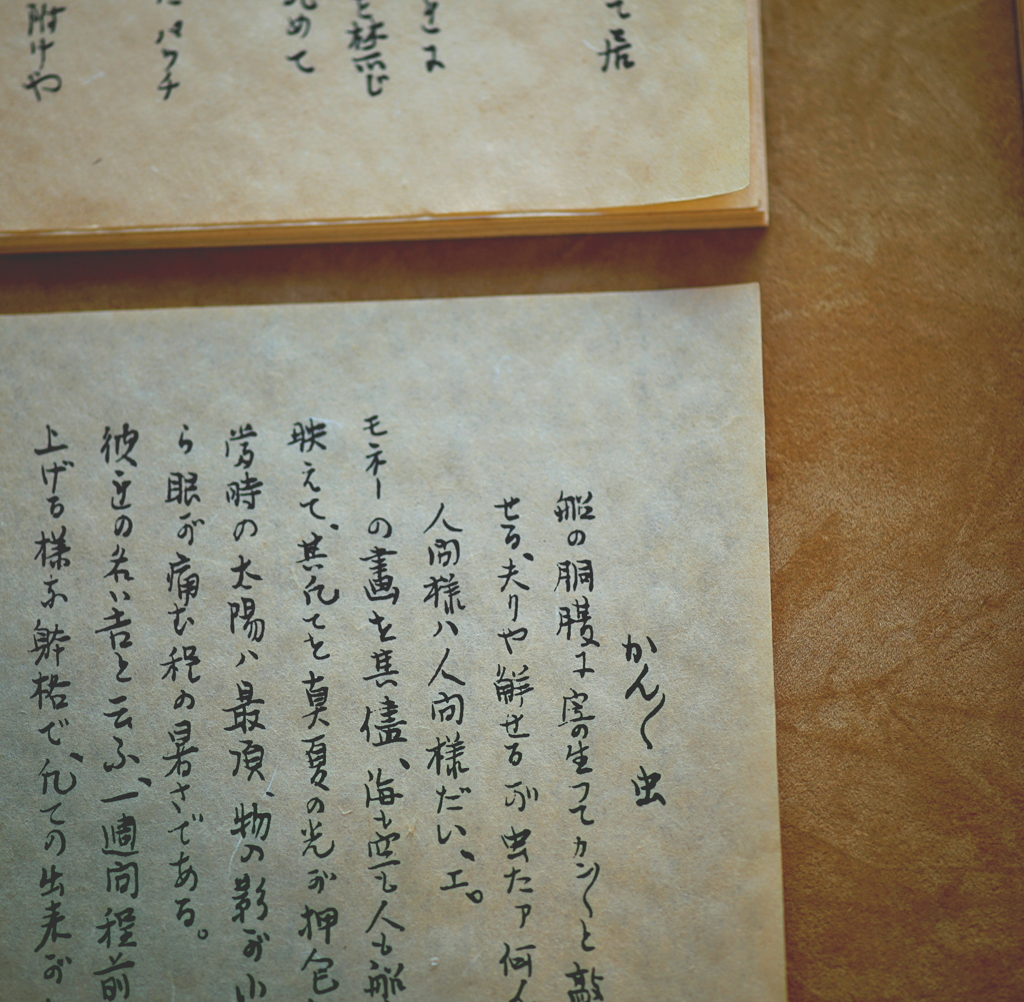 て居
きに
めて
たパウチ
附けや
かん〱虫
船の胴腹に寄生つてカン〱と敲
せる、夫りや解せるが虫たア何
人間様ハ人間様だい、エ。
モネーの畫を其儘、海も空も人も船
映えて、其凡てを真夏の光が押包
當時の太陽ハ最頂、物の影が小
ら眼が痛む程の暑さである。
彼近の若い者と云ふ、一週间程前
上げる様な骨格で、凡ての出来が